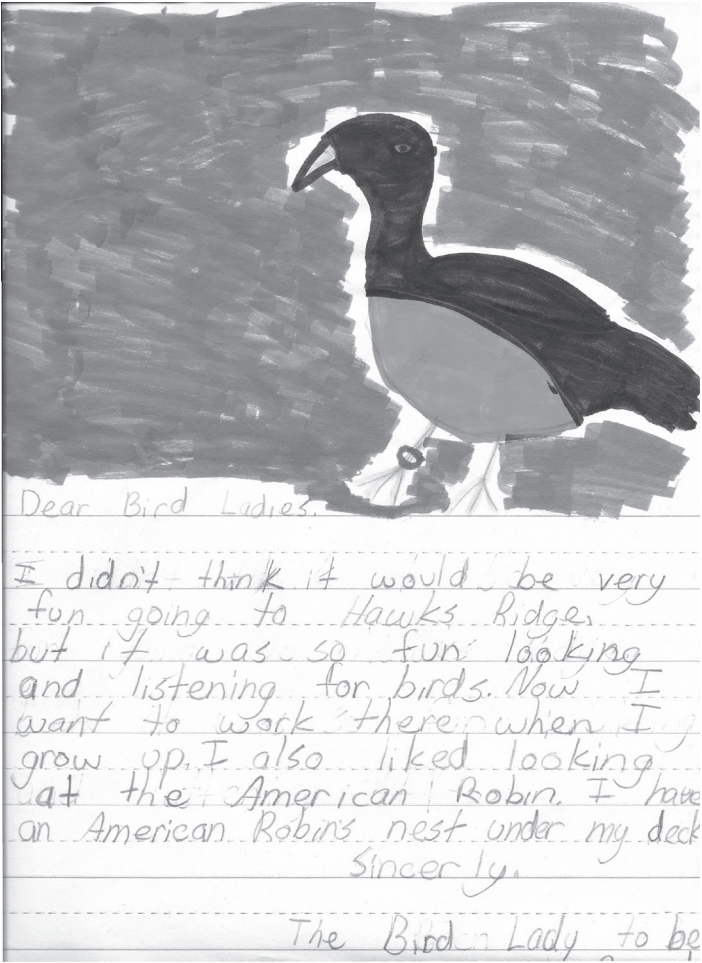 Dear Bird Ladies.
I didn't think it would be very
fun going to Hawks Ridge,
but it was so fun looking
and listening for birds. Now I
want to work there when I
grow up. I also liked looking
at the American Robin. I have
an American Robins nest under my deck
Sincerly.
The Bird Lady to be